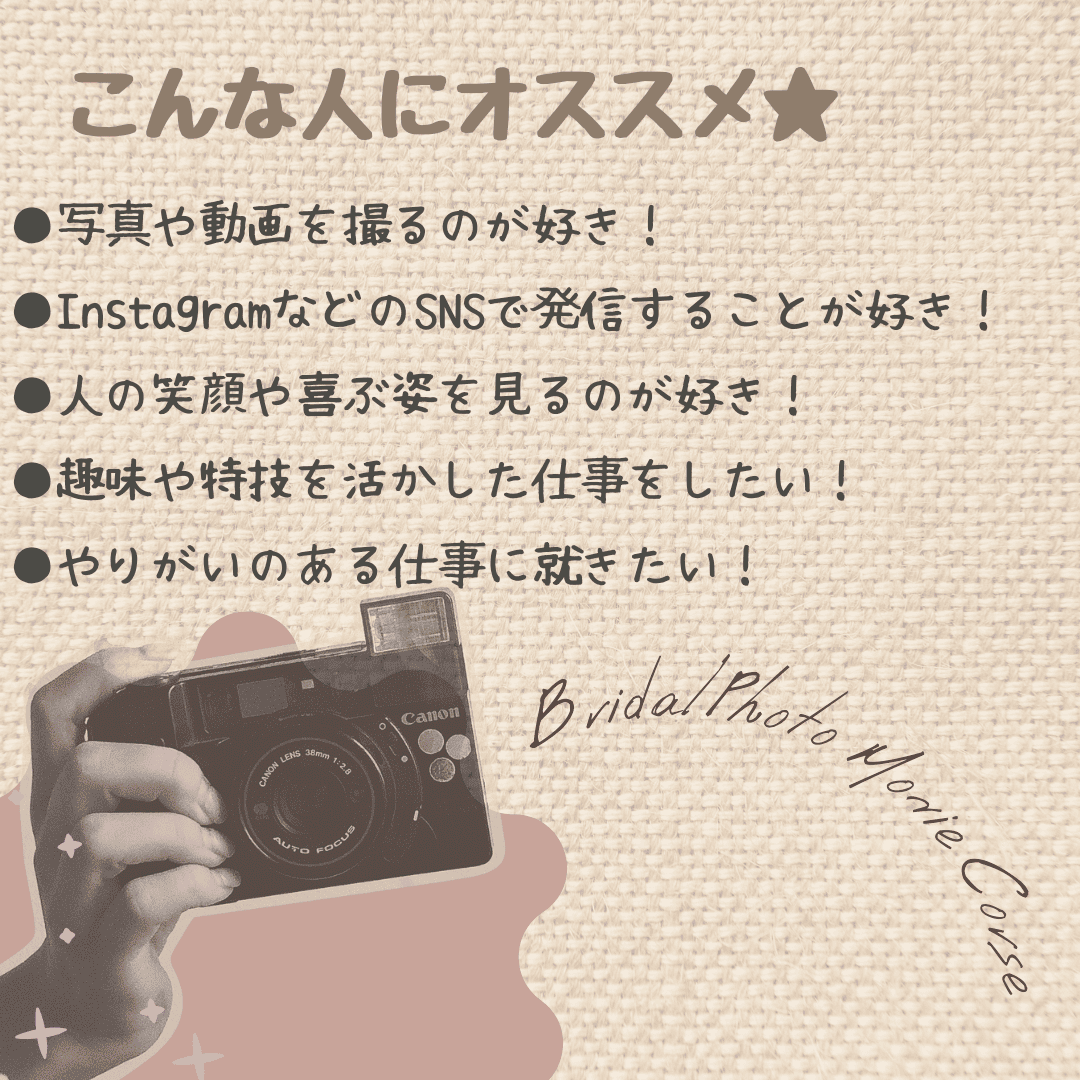 こんな人にオススメ★
●写真や動画を撮るのが好き！
●InstagramなどのSNSで発信することが好き！
●人の笑顔や喜ぶ姿を見るのが好き！
●趣味や特技を活かした仕事をしたい！
●やりがいのある仕事に就きたい！
Canon
CANON LENS 38mm 1:2.8
AUTO FOCUS
BridalPhoto Movie Corse